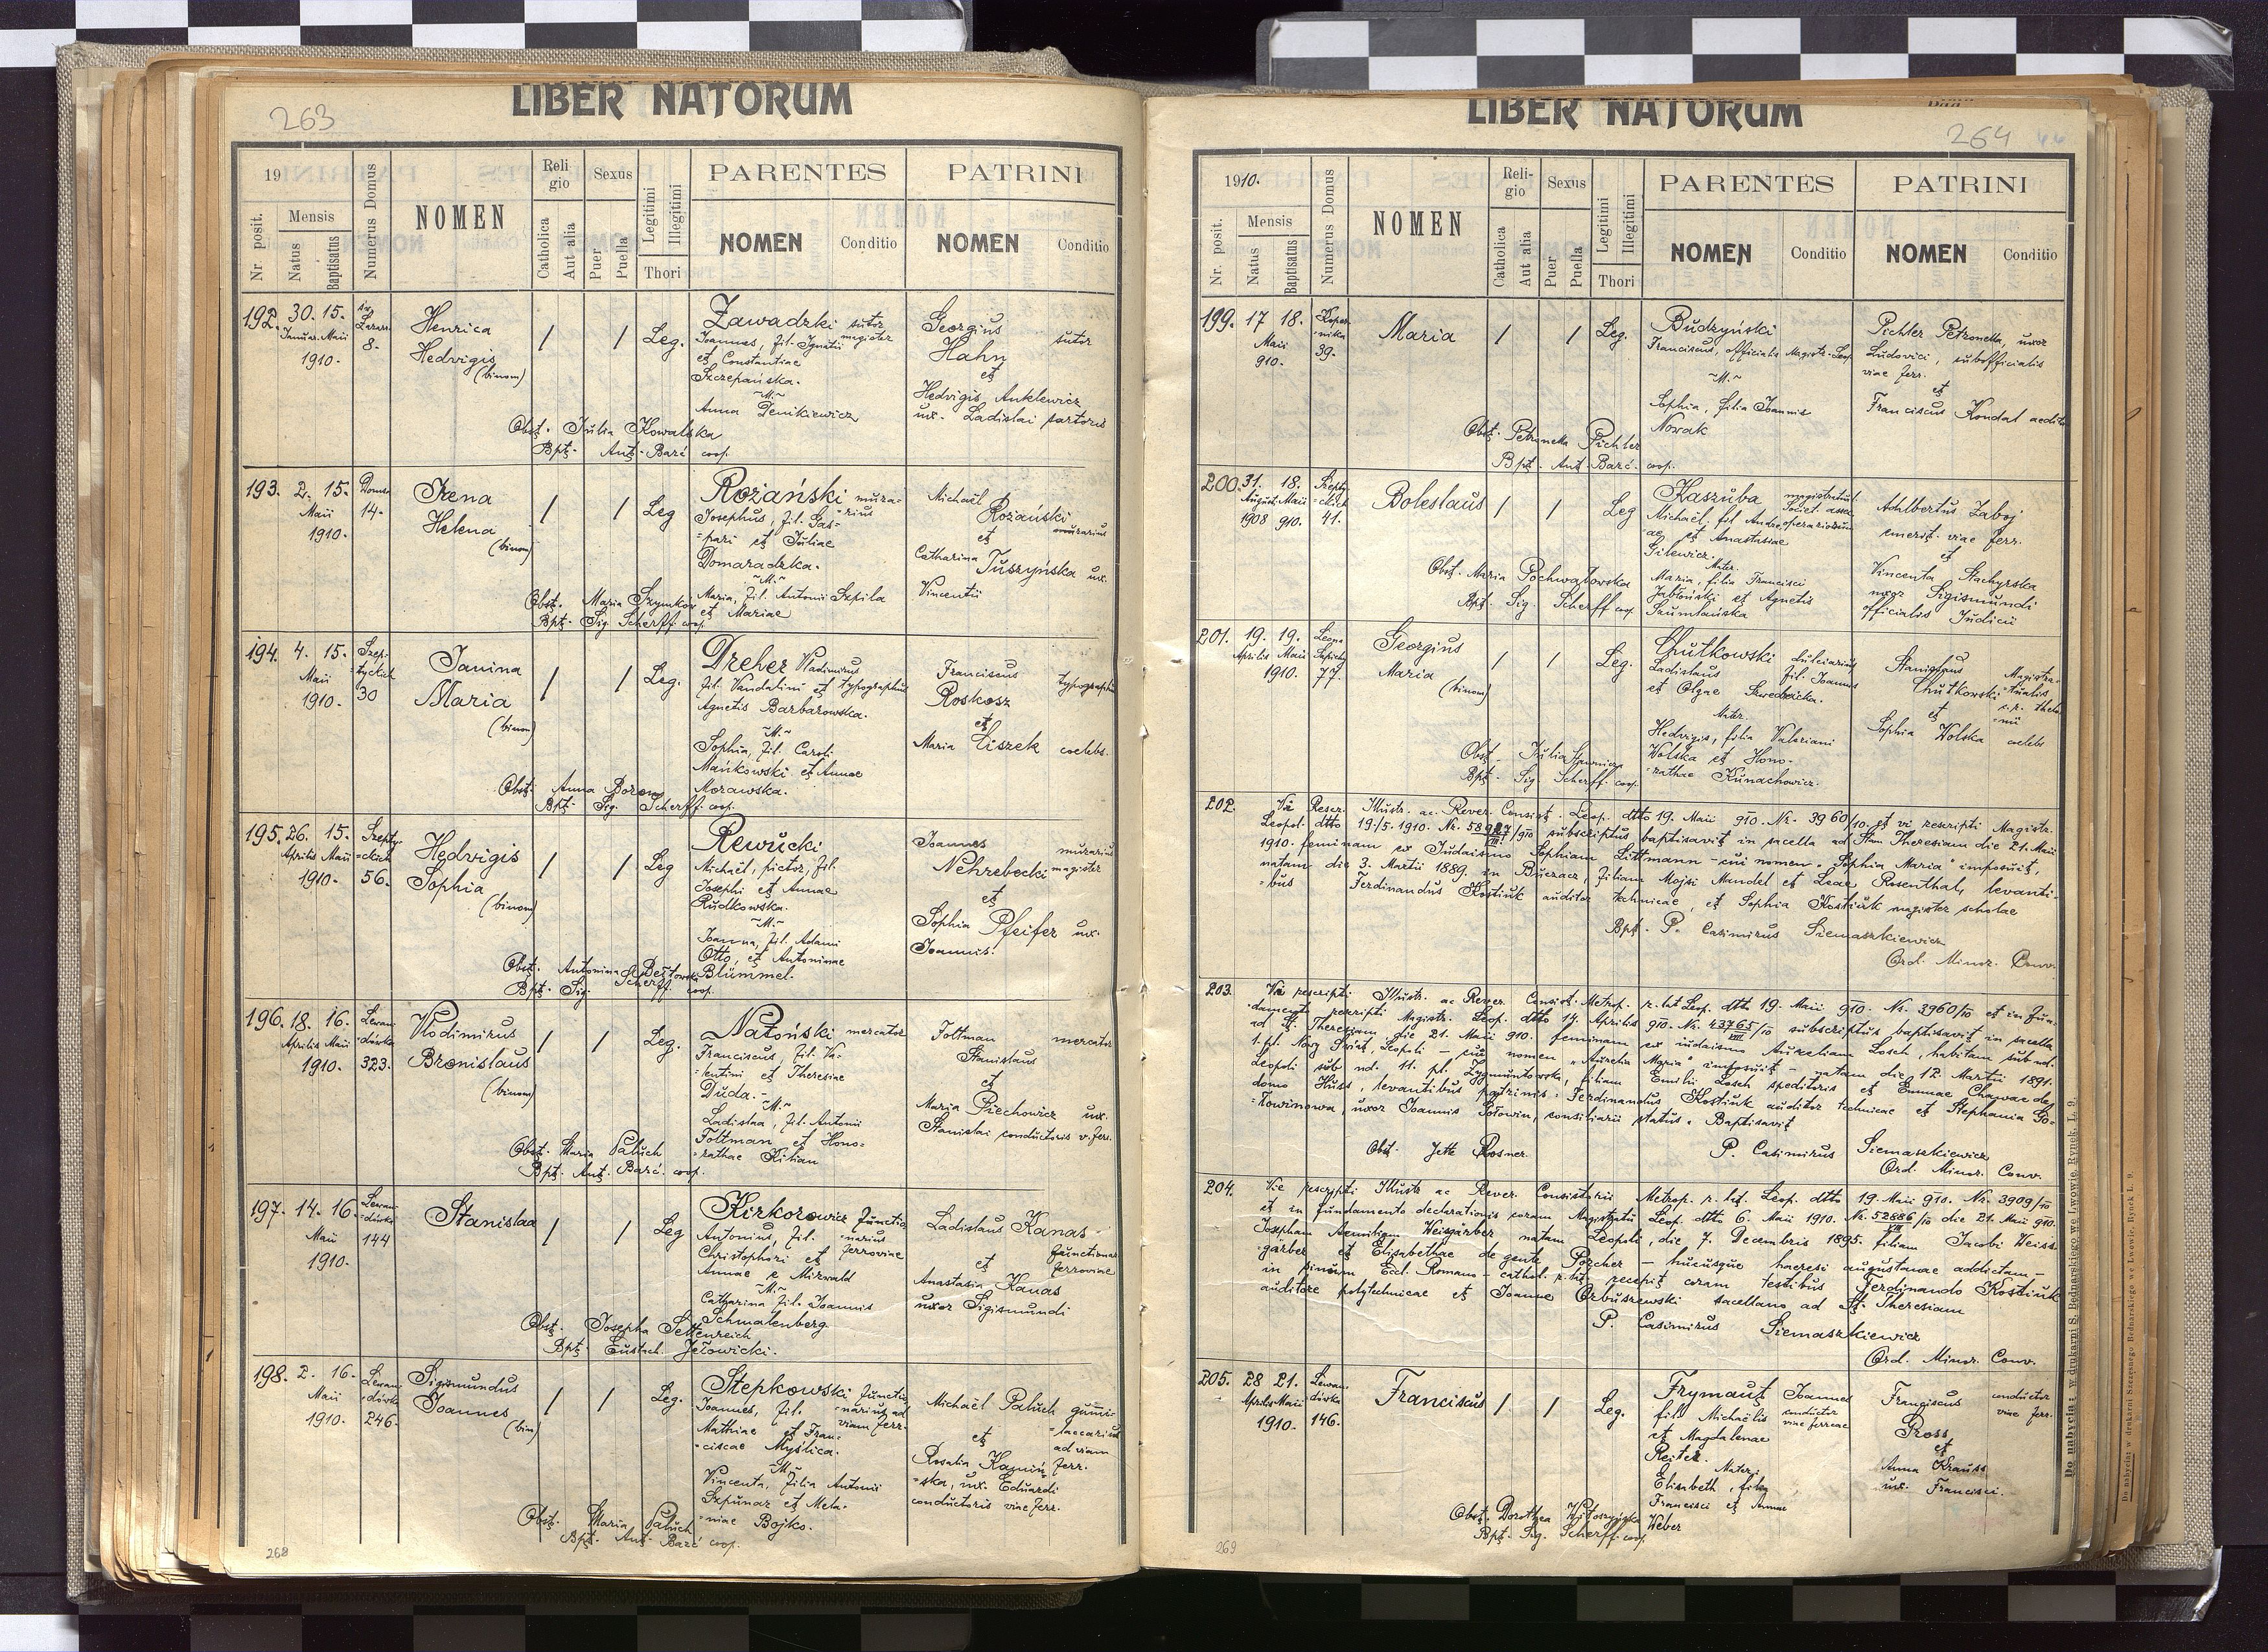 263
LIBER NATORUM
19
Mensis
Nr. posit.
Natus
Baptisatus
Numerus Domus
NOMEN
Religio
Catholica
Aut alia
Sexus
Puer
Puella
Legitimi
Illegitimi
Thori
PARENTES
NOMEN
Conditio
PATRINI
NOMEN
Conditio
192. 30. 15.
Januar. Maii
1910.
8.
Henrica
Hedvigis
(binom)
/ / Leg.
Zawadzki sutor
Joannes, fil. Ignatii magister
et Constantiae
Szczepańska.
~M.~
Anna Denikiewicz
Georgius sutor
Hahn
et
Hedvigis Anklewicz
ux. Ladislai sartoris
Obst. Julia Kowalska
Bpt. Ant. Barć coop.
193. 2. 15.
Maii
1910.
14.
Irena
Helena
(binom)
/ / Leg
Rożański mura-
Josephus, fil. Gas- -rius
-pari et Juliae
Domaradzka.
~M.~
Maria, fil. Antonii Szpila
et Mariae
Michaël
Rożański
murarius
et
Catharina Tuszyńska ux.
Vincentii
Obst. Maria Szymków
Bpt. Sig. Scherff coop.
194. 4. 15.
Maii
1910.
Szep-
-tyckich
30
Janina
Maria
(binom)
/ / Leg.
Dreher Vladimirus
fil. Vandalini et typographus
Agnetis Barbarowska.
~M.~
Sophia, fil. Caroli
Mańkowski et Annae
Morawska.
Franciscus typographus
Roskosz
et
Maria Liszek coelebs.
Obst. Anna
Bpt. Sig. Scherff coop.
195. 26. 15.
Aprilis Maii
1910.
Szepty-
-ckich
56.
Hedvigis
Sophia
(binom)
/ / Leg
Rewucki
Michaël, pictor, fil.
Josephi et Annae
Rudkowska.
~M.~
Joanna, fil. Adami
Otto, et Antoninae
Blümmel.
Joannes murarius
Nehrebecki magister
et
Sophia Pfeifer ux.
Joannis.
Obst. Antonina
Bpt. Sig. Scherff coop.
196. 18. 16.
Aprilis Maii
1910.
Lewan-
-dówka
323.
Vlodimirus
Bronislaus
(binom)
/ / Leg.
Natoński mercator
Franciscus, fil. Va-
-lentini et Theresiae
Duda.
~M.~
Ladislaa, fil. Antonii
Foltman et Hono-
-rathae Kilian
Foltman mercator
Stanislaus
et
Maria Piechowicz ux.
Stanislai conductoris v. ferr.
Obst. Maria Paluch
Bpt. Ant. Barć coop.
197. 14. 16.
Maii
1910.
Lewan-
-dówka
144
Stanislaa
/ / Leg
Kirkorowicz functio-
Antonius, fil. -narius
Christophori et ferroviae
Annae e Mirwald
~M.~
Catharina fil. Joannis
Schmalenberg.
Ladislaus Kanas
functionar.
et ferroviae
Anastasia Kanas
uxor Sigismundi
Obst. Josepha Settenreich
Bpt. Eustach. Jełowicki.
198. 2. 16.
Maii
1910.
Lewan-
-dówka
246.
Sigismundus
Joannes
(bin)
/ / Leg.
Stepkowski functio-
Joannes, fil. -narius ad
Mathiae et Fran- viam ferr.
-ciscae Myślica.
~M.~
Vincenta, filia Antonii
Szpunar et Mela-
-niae Bojko.
Michaël Paluch
et
ad viam
Rosalia Kamiń- ferr.
-ska, ux. Eduardi
conductoris viae ferr.
Obst. Maria Paluch
Bpt. Ant. Barć coop.
268
LIBER NATORUM
264
1910.
Mensis
Nr. posit.
Natus
Baptisatus
Numerus Domus
NOMEN
Religio
Catholica
Aut alia
Sexus
Puer
Puella
Legitimi
Illegitimi
Thori
PARENTES
NOMEN
Conditio
PATRINI
NOMEN
Conditio
199. 17 18.
Maii
910.
Koper-
-nika
39.
Maria
/ / Leg.
Budzyński
Franciscus, officialis Magistr. Leop.
~M.~
Sophia, filia Joannis
Nowak
Pichler Petronella, uxor
Ludovici, subofficialis
viae ferr.
et
Franciscus Kondal
Obst. Petronella Pichler
Bpt. Ant. Barć. coop.
200. 31. 18.
August. Maii
1908 910.
Szepty-
-ckich
41.
Boleslaus
/ / Leg
Kaszuba
Michaël, fil Andre-
-ae et Anastasiae
Gilewicz.
Mater.
Maria, filia Francisci
Jabłoński et Agnetis
Szumlańska
Adalbertus Zaboj
emerit. viae ferr.
et
Vincenta Stachyrska
uxor Sigismundi
officialis Judicii
Obst. Maria Pochwałowska
Bpt. Sig. Scherff coop.
201. 19. 19.
Aprilis Maii
1910.
Leona
Sapiehy
77.
Georgius
Maria
(binom)
/ / Leg.
Chutkowski dulciarius,
Ladislaus fil. Joannis
et Olgae Szwedzicka.
Mater.
Hedvigis, filia Valeriani
Wolska et Hono-
-rathae Kunachowicz.
Stanislaus
Chutkowski
et
Sophia Wolska coelebs
Obst. Julia
Bpt. Sig. Scherff coop.
202. Vi Rescr. Illustr. ac Rever. Consist. Leop. dtto 19. Maii 910. Nr. 3960/10. et vi rescripti Magistr.
Leopol. dtto 19./5. 1910. Nr. /910 subscriptus baptisavit in sacella ad Stam Theresiam die 21. Maii
1910. feminam ex Judaismo Sophiam Littmann - cui nomen "Sophia Maria" imposuit,
natam die 3. Martii 1889. in Buczacz, filiam Mojsi Mandel et Leae Rosenthal, levanti-
-bus Ferdinandus Kostiuk auditor technicae, et Sophia Kostiuk magister scholae
Bpt. P. Casimirus Siemaszkiewicz
Ord. Minor. Conv.
203. Vi rescripti Illustr. ac Rever. Consist. Metrop. r. lat. Leop. dtto 19. Maii 910. Nr. 3960/10 et in fun-
-damento rescripti Magistr. Leop. dtto 14. Aprilis 910. Nr. 43765/10 subscriptus baptisavit in sacella
ad S. Theresiam, die 21. Maii 910. feminam ex iudaismo Aureliam Losch, habitam sub nd.
1. pl. Nowy Świat, Leopoli - cui nomen "Aurelia Maria" imposuit - natam die 12. Martii 1891.
Leopoli sub nd. 11. pl. Zygmuntowska, filiam Emilii Losch speditoris et Emmae Charwae de
domo Huss, levantibus patrinis: Ferdinandus Kostiuk auditor technicae et Stephania Go-
-łowinowa, uxor Joannis Gołowin, consiliarii status. Baptisavit
Obst. Jette Rosner.
P. Casimirus Siemaszkiewicz
Ord. Minor. Conv.
204. Vie rescripti Illustr. ac Rever. Consistorii Metrop. r. lat. Leop. dtto 19. Maii 910. Nr. 3909/10
et in fundamento declarationis coram Magistratu Leop. dtto 6. Maii 1910. Nr. 52886/10 die 21. Maii 910.
Josepham Aemiliam Weisgärber natam Leopoli, die 7. Decembris 1895. filiam Jacobi Weiss-
-gärber et Elisabethae de gente Porcher - hucusque haeresi augustanae addictam -
in sinum Eccl. Romano-cathol. r. lat. recepit coram testibus Ferdinando Kostiuk
auditore polytechnicae et Joanne Orbuszewski sacellano ad S. Theresiam
P. Casimirus Siemaszkiewicz
Ord. Minor. Conv.
205. 28 21.
Aprilis Maii
1910.
Lewan-
-dówka
146.
Franciscus
/ / Leg.
Frymaut Joannes
fil. Michaëlis conductor
et Magdalenae viae ferreae
Reiter.
Mater:
Elisabeth, filia
Francisci et Annae
Weber
Franciscus conductor
viae ferr.
Gross
et
Anna Krauss
ux. Francisci.
Obst. Dorothea Witoszyńska
Bpt. Sig. Scherff coop.
269
Do nabycia w drukarni S. Bednarskiego we Lwowie, Rynek, L. 9.
Do nabycia w drukarni Szczesnego Bednarskiego we Lwowie, Rynek L. 9.